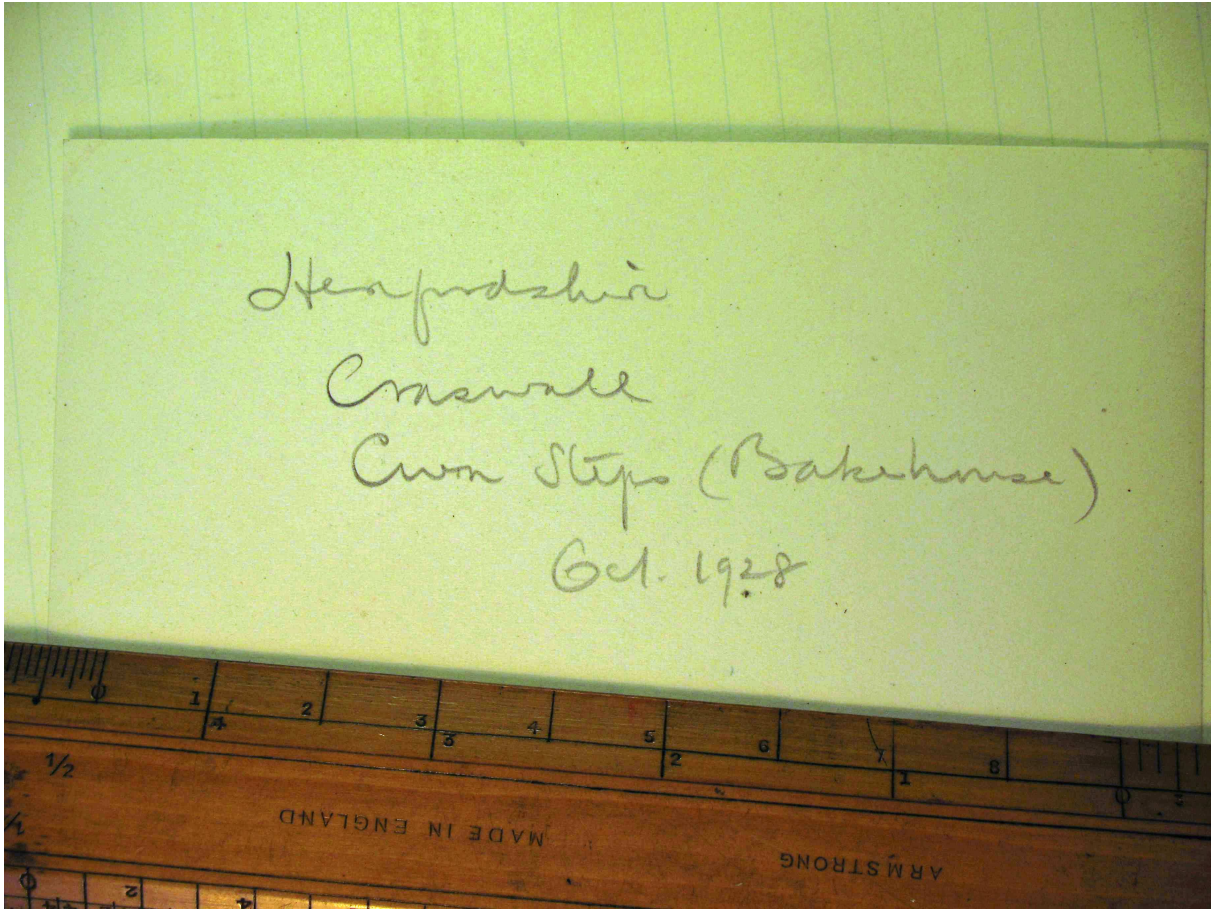 Herefordshire
Craswall
Cwm Steps (Bakehouse)
Oct. 1928
1 2 3 4 5 6 7 8
4 3 2 1
1/2
MADE IN ENGLAND
ARMSTRONG
2 4